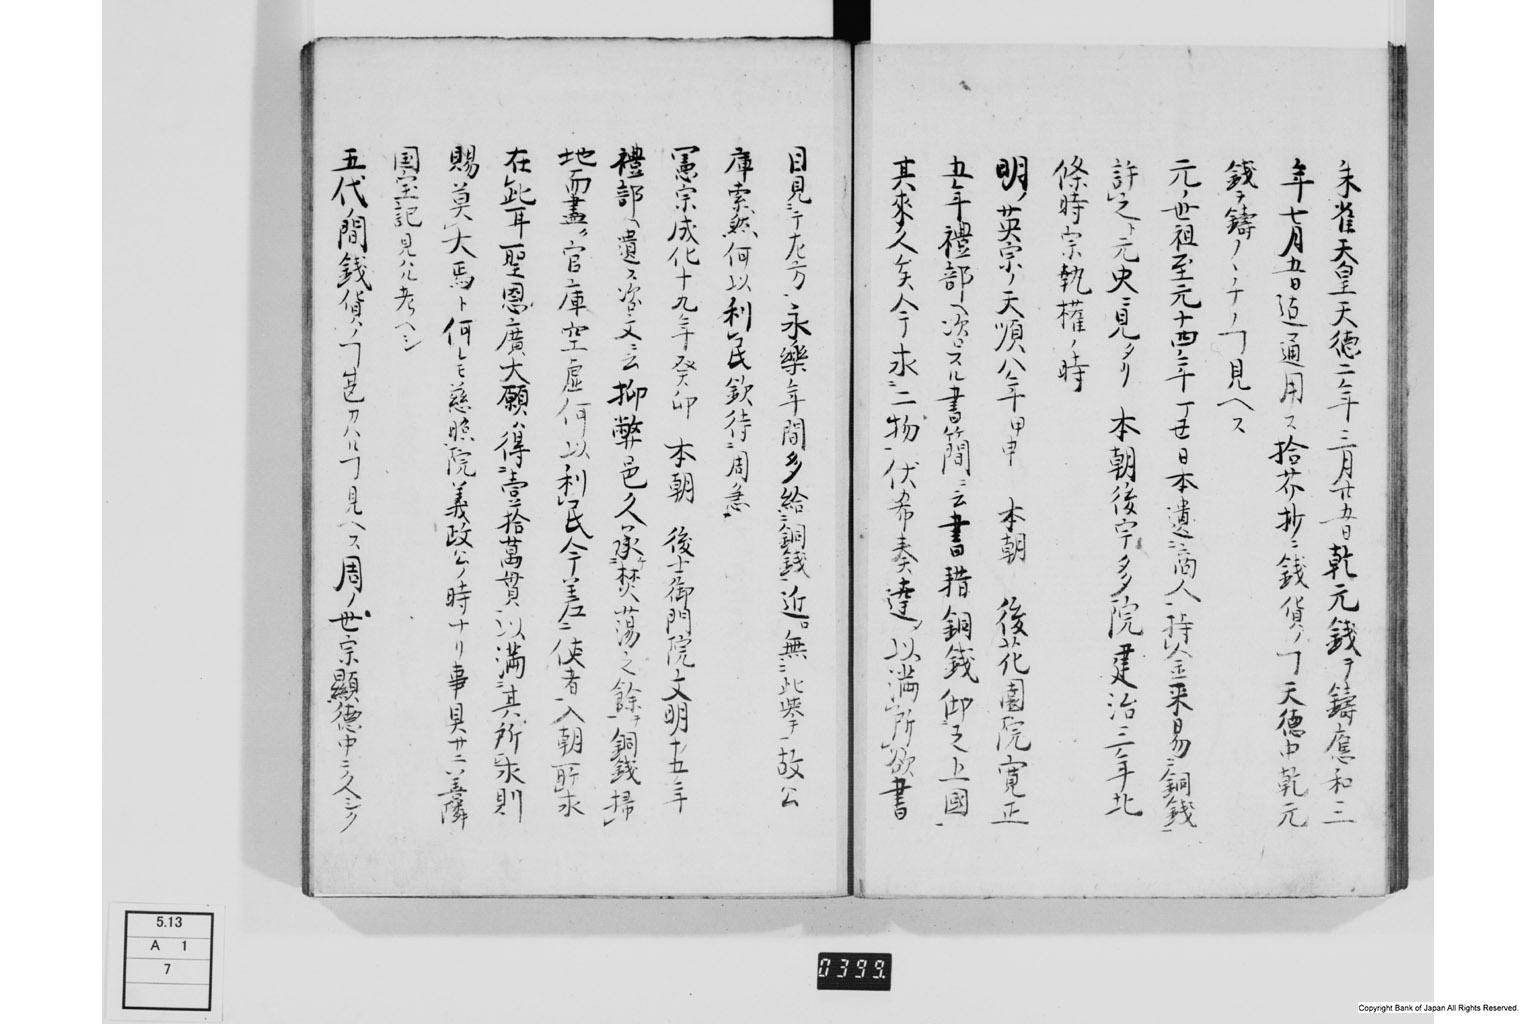 朱雀天皇天德二年三月廿五日乾元錢ヲ鑄應和三
年七月五日迠通用ス拾芥抄ニ錢貨ノヿ天德中乾元
錢ヲ鑄ノヽチノヿ見ヘス
元ノ世祖至元十四年丁丑日本遣商人持金来易銅錢
許之ト元史ニ見タリ 本朝後宇多院建治三年北
條時宗執權ノ時
明ノ英宗ノ天順八年甲申 本朝 後花園院寛正
五年禮部ヘ次スル書簡ニ云書籍銅錢仰之上國
其來久矣今求二物伏希奏達以満所欲書
目見于左方永樂年間多給銅錢近無此挙故公
庫索然何以利民欽待周急
憲宗成化十九年癸卯 本朝 後土御門院文明十五年
禮部ヘ遣ス咨文ニ云抑弊邑久承焚蕩之餘銅錢掃
地而盡官庫空虚何以利民今差使者入朝所求
在此耳聖恩廣大願得壹拾萬貫以満其所求則
賜莫大焉ト何レモ慈照院義政公ノ時ナリ事具サニ善隣
国宝記見ハル考ヘシ
五代ノ間錢貨ノヿ皃カハルヿ見ヘス周ノ世宗顯德中ニ久シク
5.13
A 1
7
0399.
Copyright Bank of Japan All Rights Reserved.